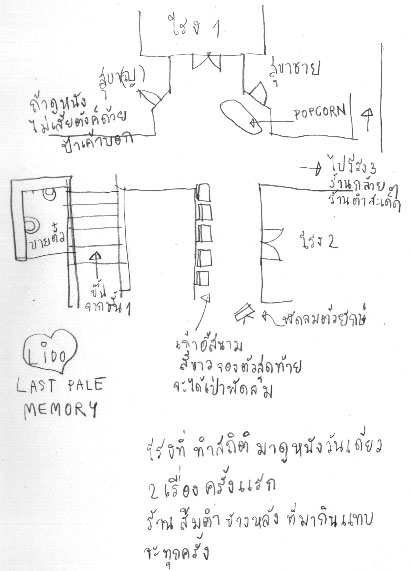 โรง 1
สุขา(ญ)
สุขาชาย
ถ้าดูหนัง
ไม่เสียตังค์ด้วย
ป้าเค้าบอก
POPCORN
ไปโรง 3
ร้านกล้วย
ร้านตำสะเด็ด
ขายตั๋ว
ขึ้น
จากชั้น 1
โรง 2
พัดลมตัวยักษ์
เก้าอี้สนาม
สีขาว จองตัวสุดท้าย
จะได้เป่าพัดลม
LIDO
LAST PALE
MEMORY
โรงที่ ทำสถิติ มาดูหนังวันเดียว
2 เรื่อง ครั้งแรก
ร้าน ส้มตำ ข้างหลัง ที่มากินแทบ
จะทุกครั้ง